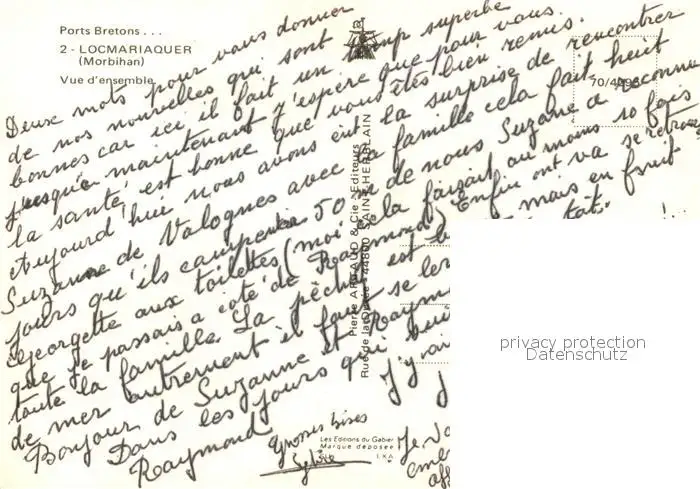 Ports Bretons . . .
2 - LOCMARIAQUER
(Morbihan)
Vue d'ensemble
Deux mots pour vous donner
de nos nouvelles qui sont
bonnes car ici il fait un temp superbe
jusqu'à maintenant j'espère que pour vous.
la santé est bonne que vous êtes bien remis.
Aujourd'hui nous avons eut la surprise de rencontrer
Suzanne de Valognes avec sa famille cela fait huit
jours qu'ils campent a 50 m de nous Suzane a reconnu
Georgette aux toilettes (moi cela faisait au moins 10 fois
que je passais a coté de Raymond) Enfin ont va se retrouver
toute la famille. La pêche est mais en fruit
de mer autrement il faut se
Bonjour de Suzanne et Raym
Dans les jours qui
Raymond
Grosses bises
Sylvie
J'y
Je
Pierre ARTAUD & Cie - Editeurs
44800 SAINT-HERBLAIN
70/4
Les Editions du Gabier
Marque déposée
privacy protection
Datenschutz